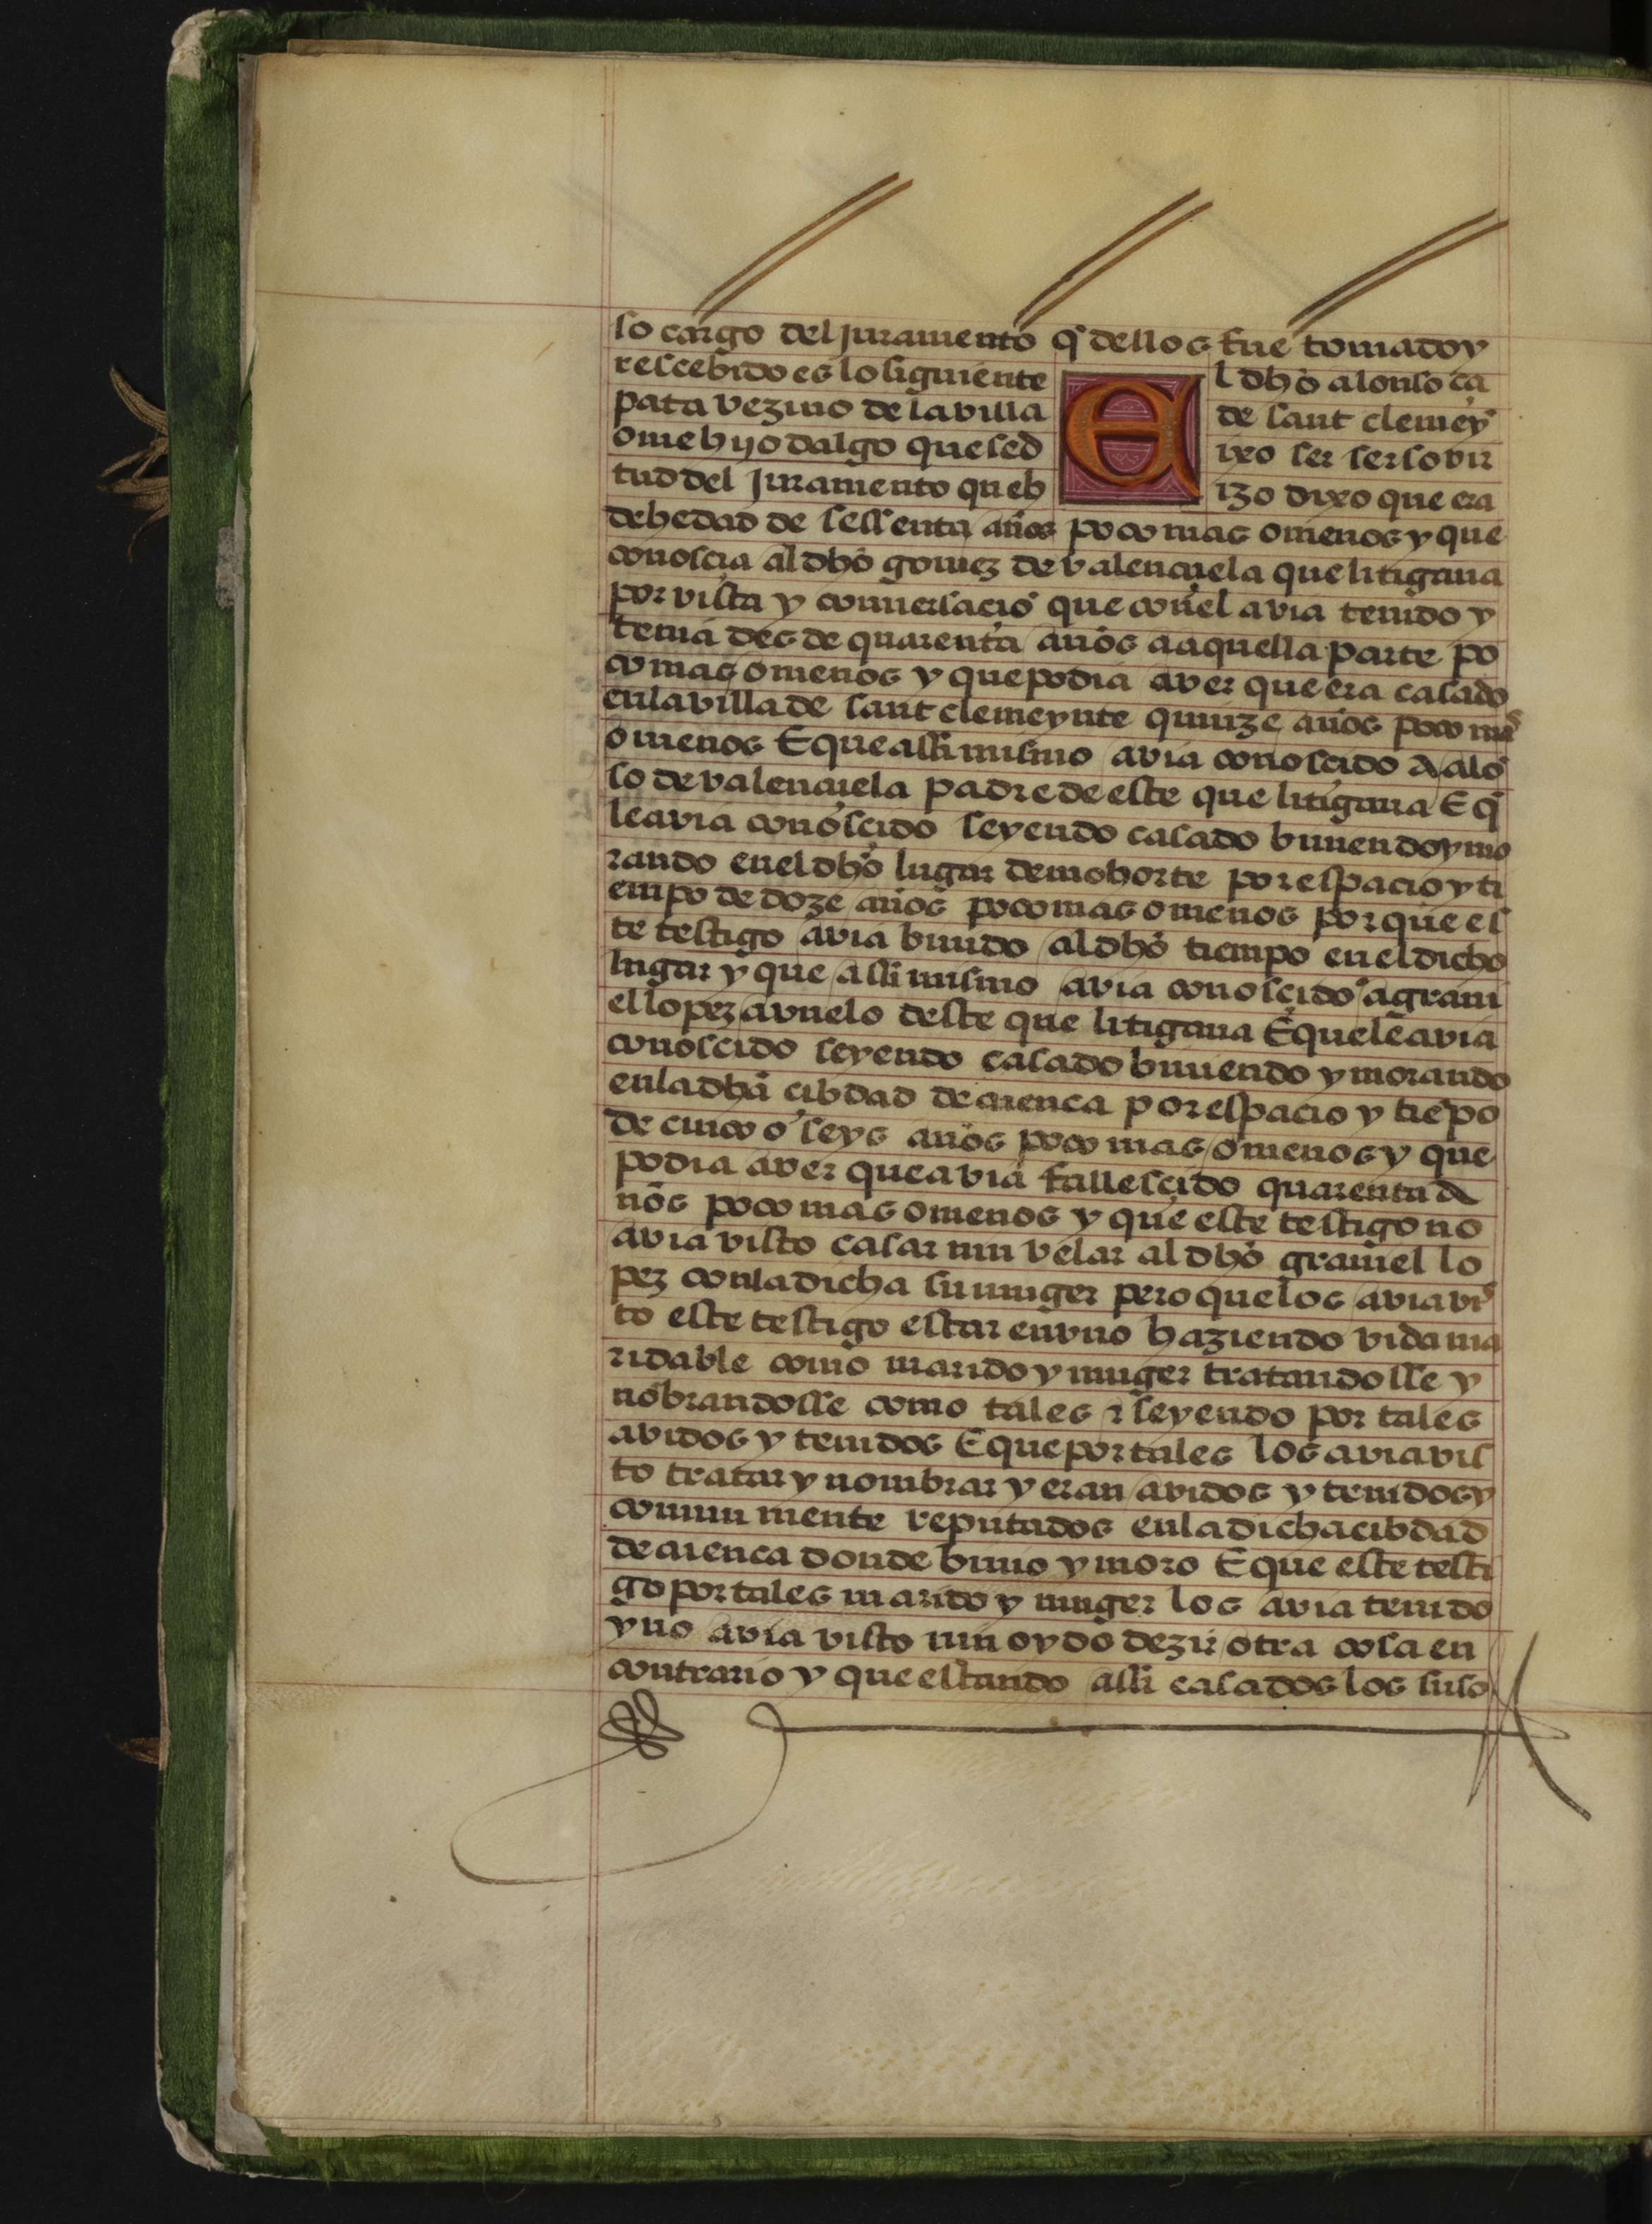 so cargo del juramento q̃ dellos fue tomado y
rescebido es lo siguiente El dho alonso ça
pata vezino de la villa de sant clemeȳ
ome hijo dalgo que se d ixo ser so vir
tud del juramento que h izo dixo que era
de hedad de sessenta años poco mas o menos y que
conoscia al dho gomez de valençuela que litigaua
por vista y conuersacio᷈ que con el avia tenido y
tenia des de quarenta años a aquella parte po
co mas o menos y que podia aver que era casado
en la villa de sant clemeynte quinze años poco mas
o menos E que assi mismo avia conoscido A alo᷈
so de valençuela padre de este que litigaua E q̃
le avia conosçido seyendo casado biuiendo y mo
rando en el dho lugar de mohorte por espacio y ti
empo de doze años poco mas o menos por que es
te testigo avia biuido al dho tiempo en el dicho
lugar y que assi mismo avia conosçido a graui
el lopez avuelo deste que litigaua E que le avia
conoscido seyendo casado biuiendo y morando
en la dha cibdad de cuenca por espacio y tiẽpo
de cinco o seys años poco mas o menos y que
podia aver que avia fallesçido quarenta A
ños poco mas o menos y que este testigo no
avia visto casar nin velar al dho grauiel lo
pez con la dicha su muger pero que los avia vis
to este testigo estar en vno haziendo vida ma
ridable como marido y muger tratandosse y
nõbrandosse como tales ⁊ seyendo por tales
avidos y tenidos E que por tales los avia vis
to tratar y nombrar y eran avidos y tenidos y
comun mente reputados en la dicha cibdad
de cuenca donde biuio y moro E que este testi
go por tales marido y muger los avia tenido
y no avia visto nin oydo dezir otra cosa en
contrario y que estando assi casados los suso